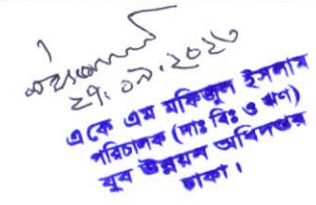 ২৭.০৯.২০২৩
এ কে এম মফিজুল ইসলাম
পরিচালক (দাঃ বিঃ ও ঋণ)
যুব উন্নয়ন অধিদপ্তর
ঢাকা।